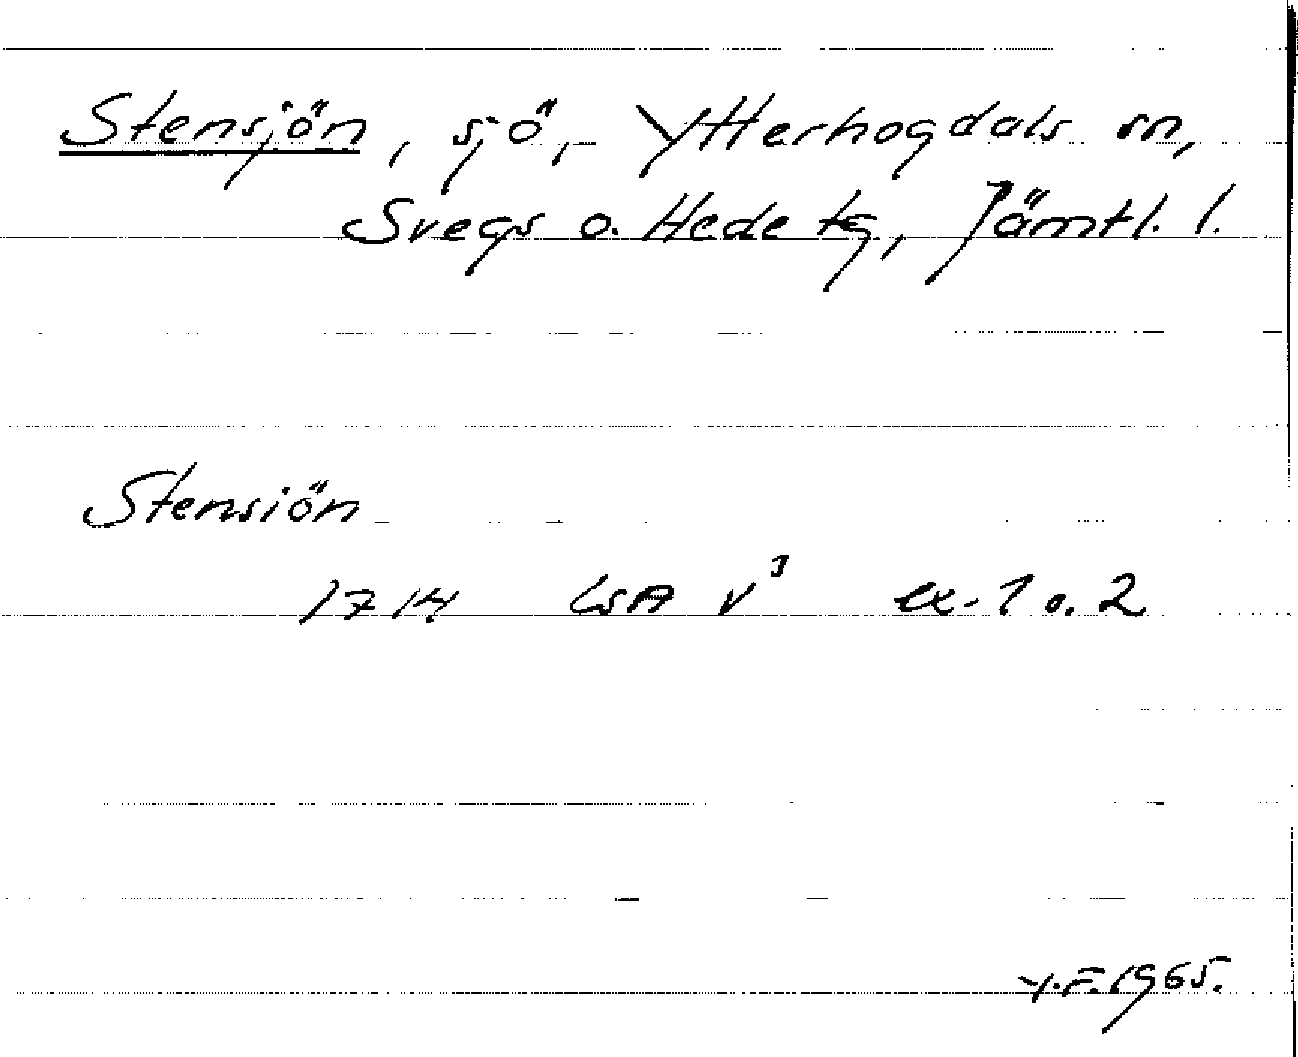 Stensjön, sjö, Ytterhogdals sn,
Svegs o. Hede tg, Jämtl. l.
Stensiön
1714 LSA V³ ex. 1 o. 2
Y.F. 1965.